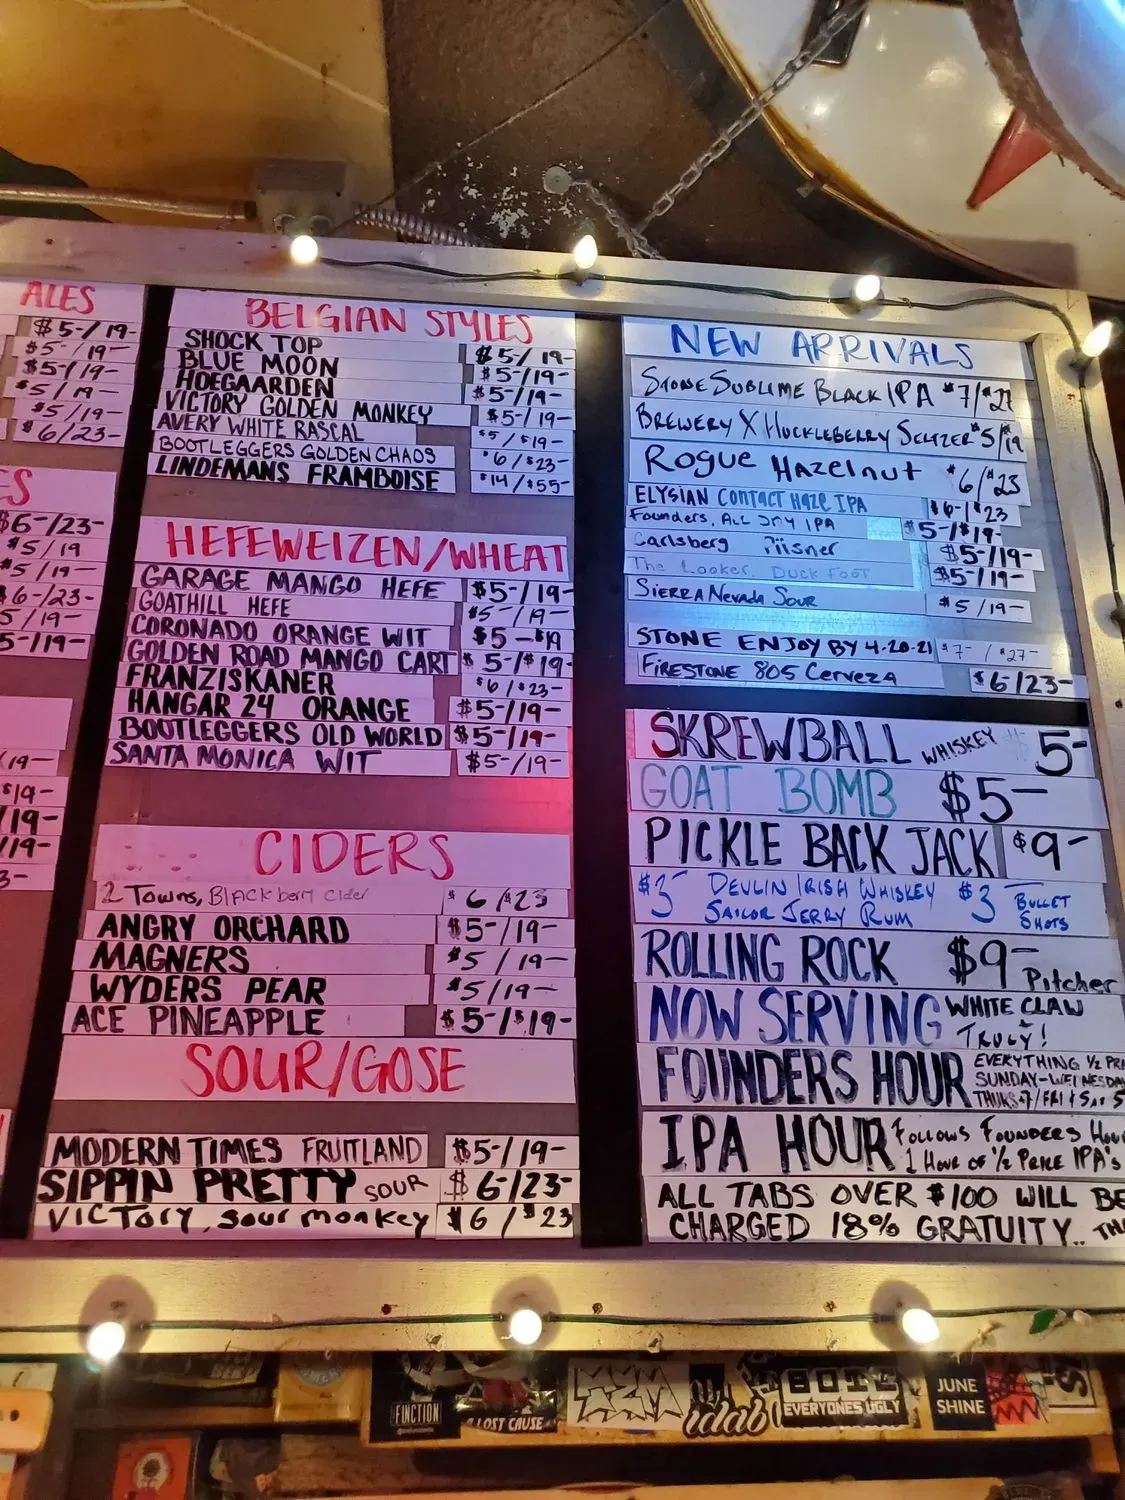 ALES
$5-/19-
$5-/19-
$5-/19-
$5/19-
$5/19-
$6/23-
ES
$6-/23-
$5/19
$5/19-
$6-/23-
5/19-
5-/19-
/19-
$19-
/19-
/19-
3-
BELGIAN STYLES
SHOCK TOP $5/19-
BLUE MOON $5-/19-
HOEGAARDEN $5-/19-
VICTORY GOLDEN MONKEY $5-/19-
AVERY WHITE RASCAL $5/$19-
BOOTLEGGERS GOLDEN CHAOS $6/$23-
LINDEMANS FRAMBOISE $14/$55-
HEFEWEIZEN/WHEAT
GARAGE MANGO HEFE $5-/19-
GOATHILL HEFE $5-/19-
CORONADO ORANGE WIT $5-$19
GOLDEN ROAD MANGO CART $5-/$19-
FRANZISKANER $6/$23-
HANGAR 24 ORANGE $5-/19-
BOOTLEGGERS OLD WORLD $5-/19-
SANTA MONICA WIT $5-/19-
CIDERS
2 Towns, Blackberry Cider $6/$23
ANGRY ORCHARD $5-/19-
MAGNERS $5/19-
WYDERS PEAR $5/19-
ACE PINEAPPLE $5-/$19-
SOUR/GOSE
MODERN TIMES FRUITLAND $5-/19-
SIPPIN PRETTY SOUR $6-/23-
VICTORY, Sour monkey $6/$23
NEW ARRIVALS
STONE SUBLIME BLACK IPA $7/$27
BREWERY X HUCKLEBERRY SELTZER $5/19
ROGUE HAZELNUT $6/$23
ELYSIAN CONTACT HAZE IPA $6-/$23
Founders, ALL DAY IPA $5-/$19-
Carlsberg Pilsner $5-/19-
The Looker, Duck Foot $5-/19-
SIERRA NEVADA SOUR $5/19-
STONE ENJOY BY 4-20-21 $7-/$27-
FIRESTONE 805 Cerveza $6-/23-
SKREWBALL WHISKEY $5-
GOAT BOMB $5-
PICKLE BACK JACK $9-
$3- DEVLIN IRISH WHISKEY $3 BULLET
SAILOR JERRY RUM SHOTS
ROLLING ROCK $9- Pitcher
NOW SERVING WHITE CLAW
TRULY!
FOUNDERS HOUR EVERYTHING 1/2 PR
SUNDAY-WEDNESDA
IPA HOUR FOLLOWS FOUNDERS HOU
1 HOUR OF 1/2 PRICE IPA'S
ALL TABS OVER $100 WILL BE
CHARGED 18% GRATUITY.. THA
FUNCTION
A LOST CAUSE
EVERYONES UGLY
JUNE
SHINE